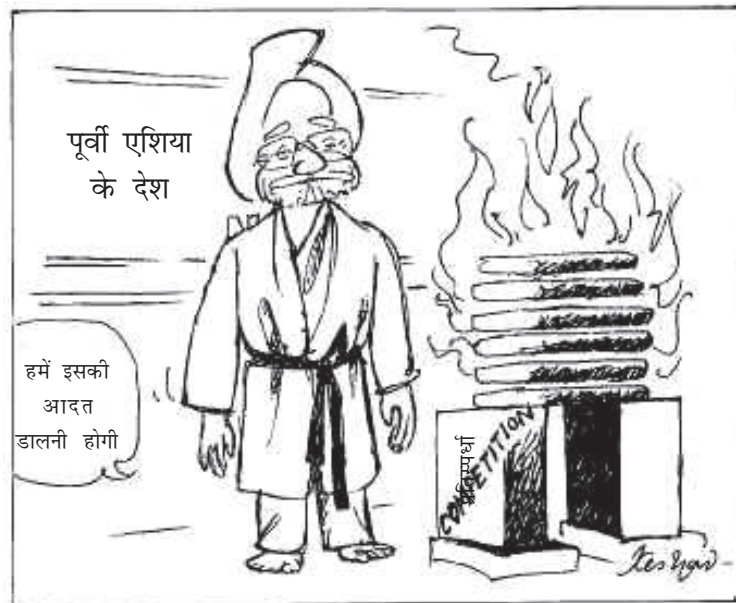 पूर्वी एशिया
के देश
हमें इसकी
आदत
डालनी होगी
COMPETITION
प्रतिस्पर्धा
Keshav